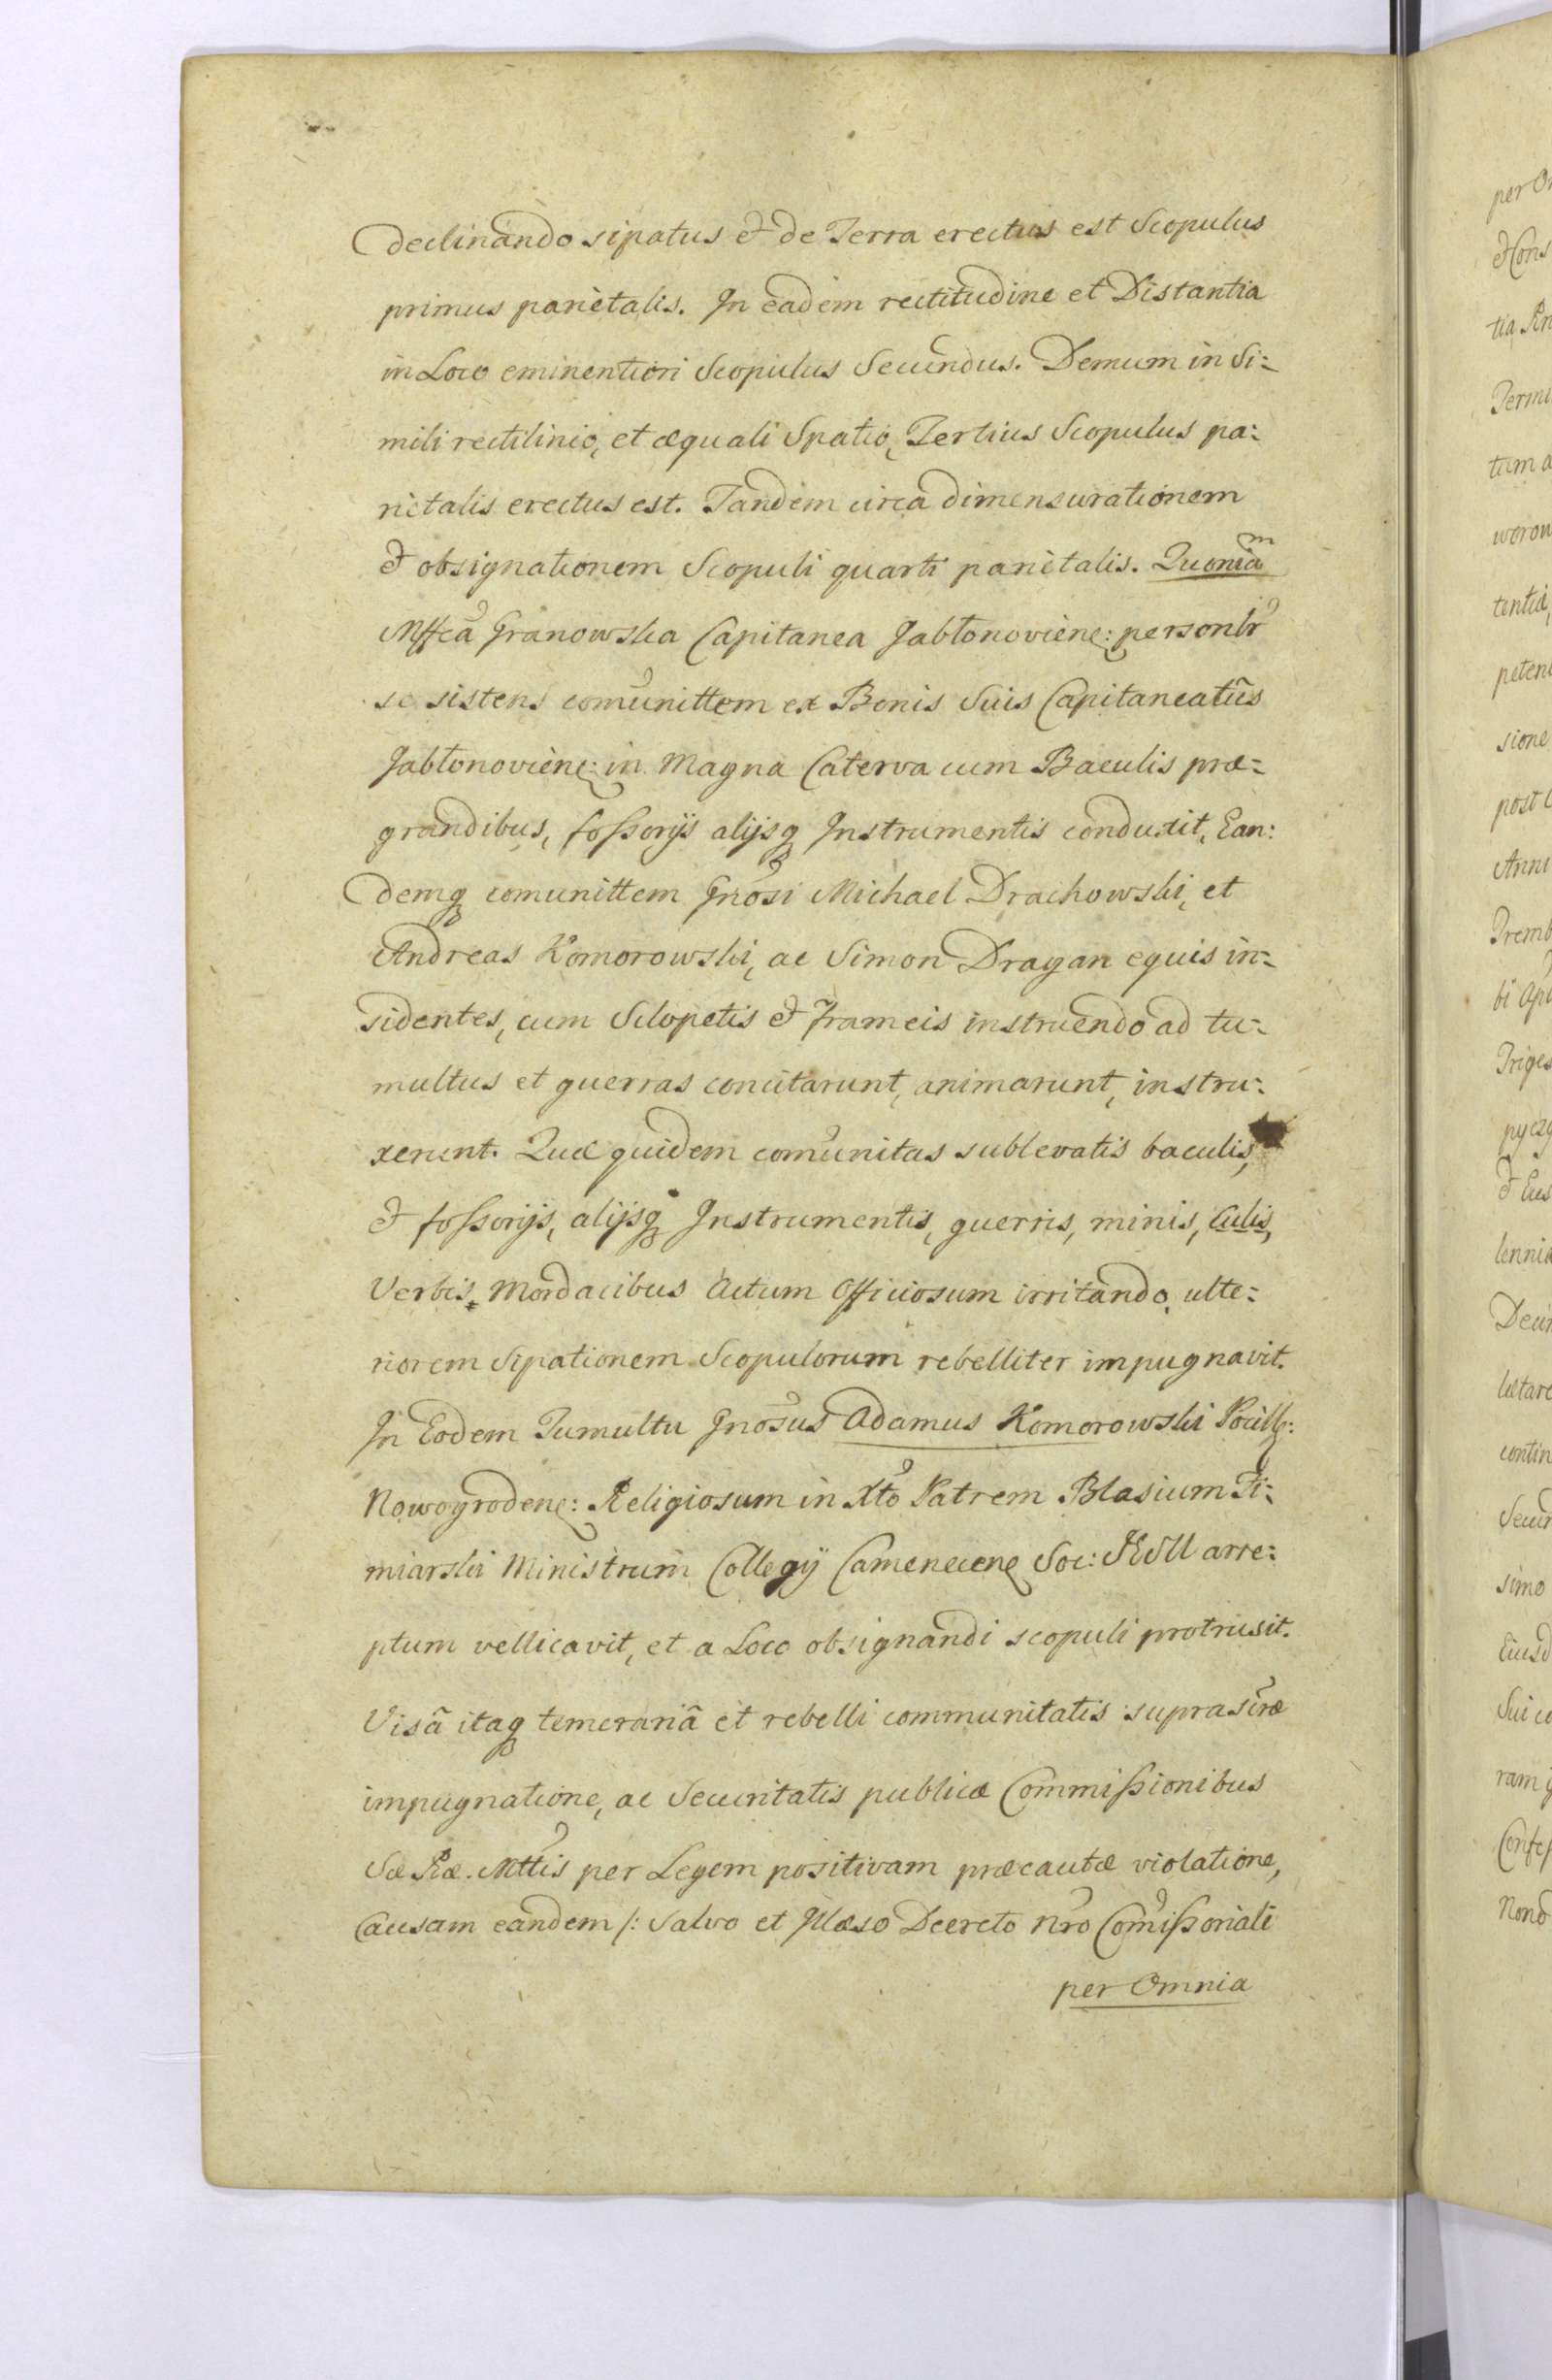 declinando sipatus & de Terra erectus est Scopulus
primus parietalis. In eadem rectitudine et Distantia
in Loco eminentiori Scopulus Secundus. Demum in Si=
mili rectilinio, et æquali Spatio, Tertius Scopulus pa=
rietalis erectus est. Tandem circa dimensurationem
& obsignationem Scopuli quarti parietalis. Quoniam
Mffca Granowska Capitanea Jabłonoviene: personlr
se sistens comunittem ex Bonis Suis Capitaneatûs
Jabłonoviene: in Magna Caterva cum Baculis præ=
grandibus, foßorijs alijsq Instrumentis conduxit, Ean:
demq comunittem Gnosi Michael Drachowski, et
Andreas Komorowski, ac Simon Dragan equis in=
sidentes, cum Sclopetis & frameis instruendo ad tu=
multus et guerras concitarunt, animarunt, instru=
xerunt. Quæ quidem comunitas sublevatis baculis,
& foßorijs, alijsq Instrumentis, guerris, minis, Culis,
Verbis, Mordacibus Actum Officiosum irritando, ulte=
riorem Sipationem Scopulorum rebelliter impugnavit.
In Eodem Tumultu Gnosus Adamus Komorowski Pocill:
Nowogrodene: Religiosum in Xto Patrem Blasium Ti=
miarski Ministrum Collegij Camenecene Soc: JESU arre=
ptum vellicavit, et a Loco obsignandi scopuli protrusit.
Visâ itaq temerariâ et rebelli communitatis suprascræ
impugnatione, ac Securitatis publicæ Commißionibus
Sæ Ræ. Mttis per Legem positivam præcautæ violatione,
Causam eandem /: Salvo et Illæso Decreto nro Comißoriali
per Omnia